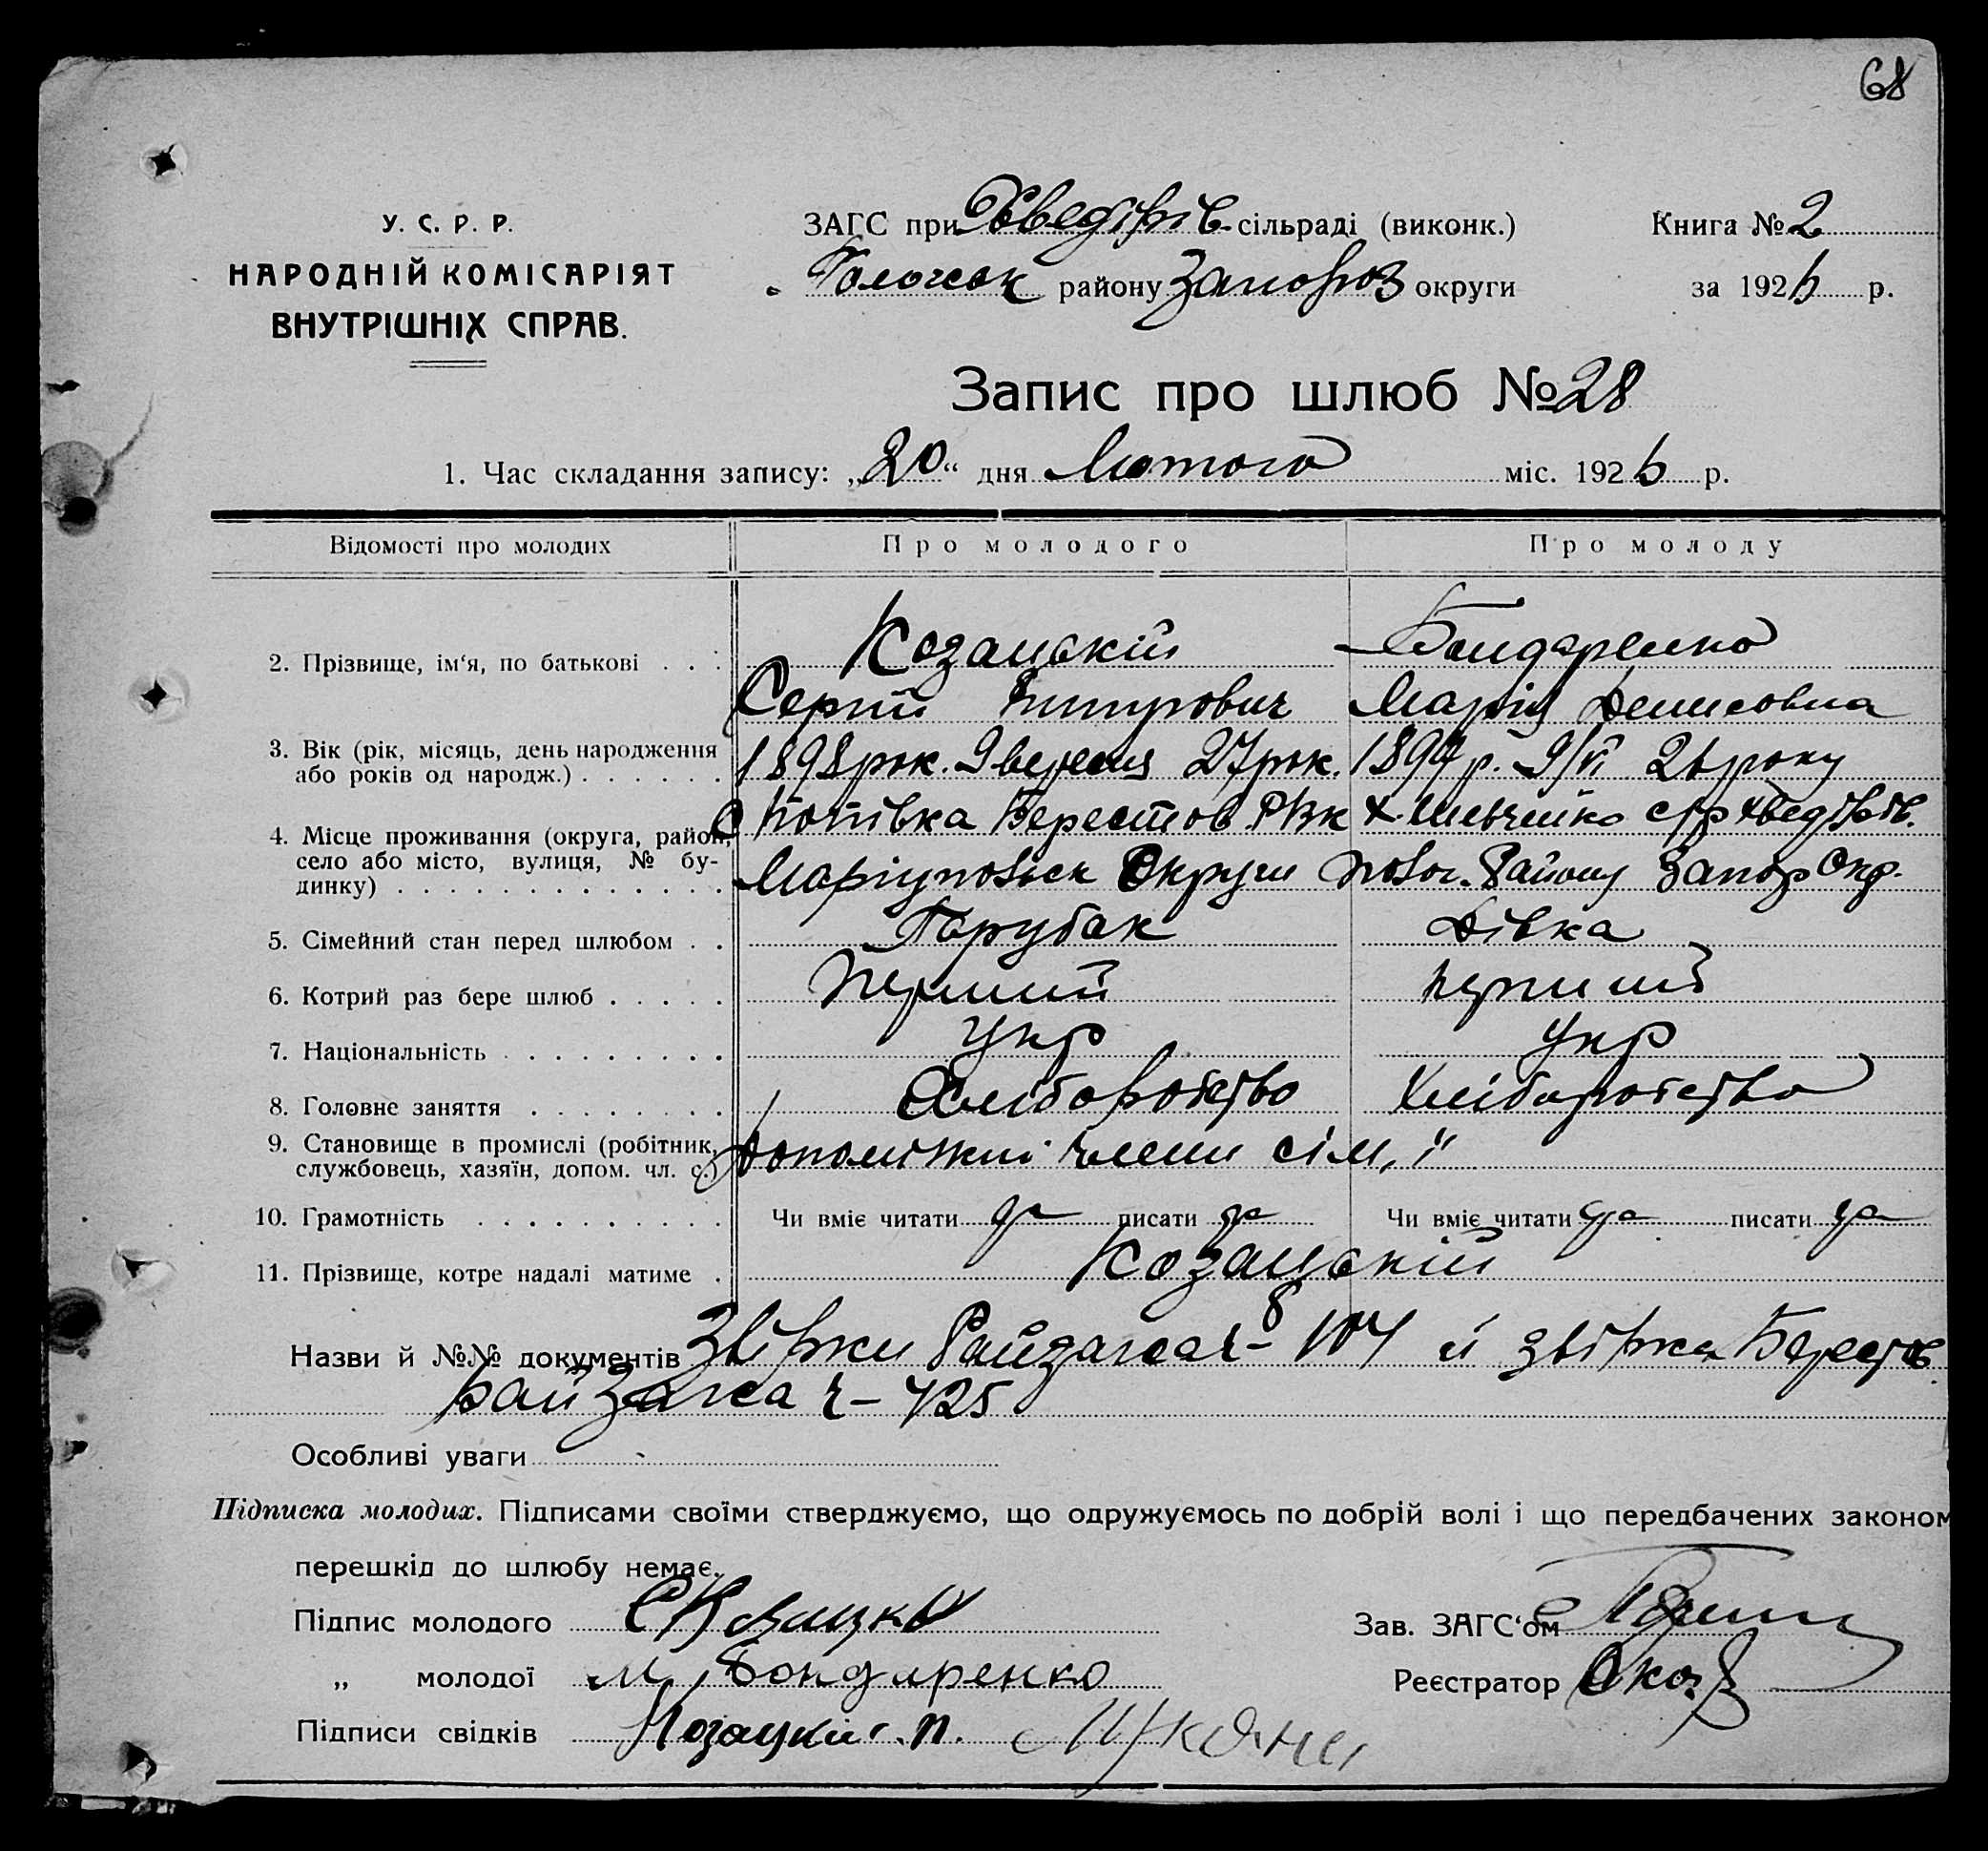 68
У. С. Р. Р.
НАРОДНІЙ КОМІСАРІЯТ
ВНУТРІШНІХ СПРАВ.
ЗАГС при Хведірів. сільраді (виконк.)
району Запороз округи
Книга № 2
за 1926 р.
Запис про шлюб № 28
1. Час складання запису: „20“ дня Лютого міс. 1926 р.
Відомості про молодих Про молодого Про молоду
2. Прізвище, ім‘я, по батькові . . . Козацькій Бондаренко
Сергій Марія Денисовна
3. Вік (рік, місяць, день народження
або років од народж.) . . . . . . 1898 рок. 9 вересня 27 рок. 9/VI 26 року
4. Місце проживання (округа, район,
село або місто, вулиця, № бу-
динку) . . . . . . . . . . . . . .
С Попівка Берестов. РВК
Маріупольск Округи
х. Шевченко с/р Хведірів.
Району Запор Окр.
5. Сімейний стан перед шлюбом . . Парубак Дівка
6. Котрий раз бере шлюб . . . . . Перший перший
7. Національність . . . . . . . . . Укр Укр
8. Головне заняття . . . . . . . . Хліборобство Хлібаробство
9. Становище в промислі (робітник,
службовець, хазяїн, допом. чл. с.) Допоміжни члени сім,ї
10. Грамотність . . . . . . . . . . Чи вміє читати да писати да Чи вміє читати да писати да
11. Прізвище, котре надалі матиме . Козацькій
Назви й №№ документів Звірки Райзагса ч- 104 й звірка Берестов
Райзагса ч- 425
Особливі уваги
Підписка молодих. Підписами своїми стверджуємо, що одружуємось по добрій волі і що передбачених законом
перешкід до шлюбу немає.
Підпис молодого С Козацкій
Зав. ЗАГС‘ом
„ молодої М Бондаренко
Реєстратор
Підписи свідків Козацкій .П.